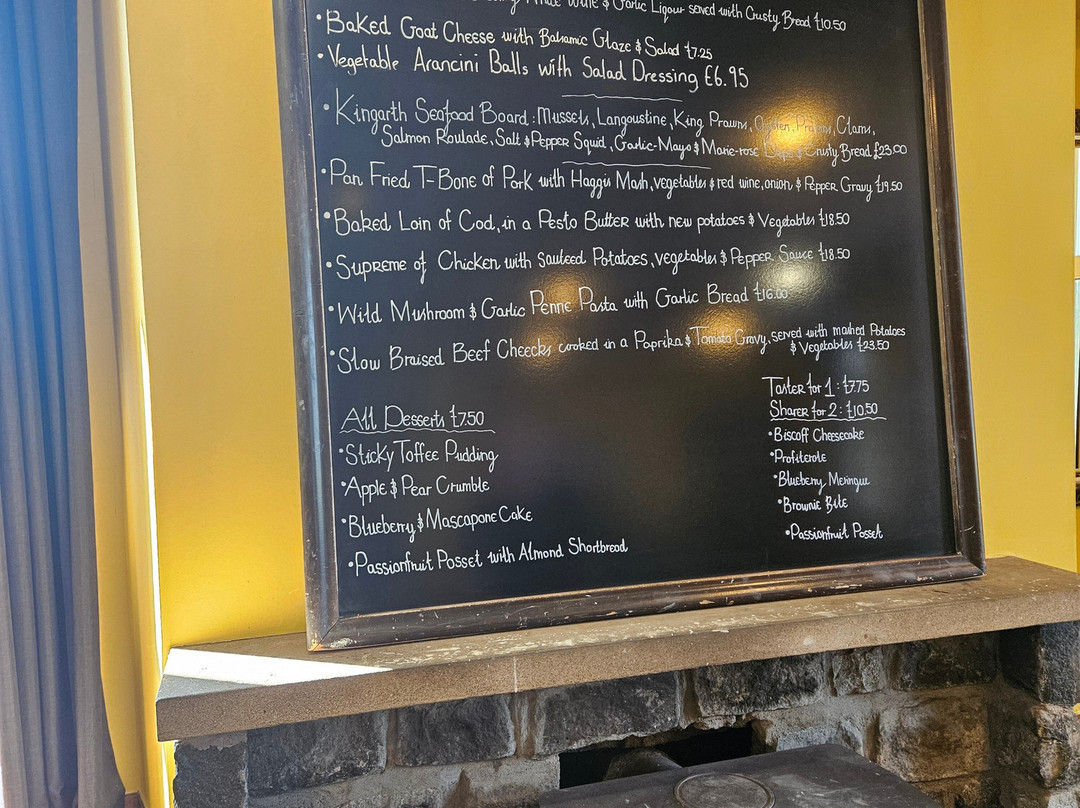 White Wine & Garlic Liqour served with Crusty Bread £10.50
•Baked Goat Cheese with Balsamic Glaze & Salad £7.25
•Vegetable Arancini Balls with Salad Dressing £6.95
•Kingarth Seafood Board: Mussels, Langoustine, King Prawns, Oysters, Prawns, Clams,
Salmon Roulade, Salt & Pepper Squid, Garlic-Mayo & Marie-rose Dips & Crusty Bread £23.00
•Pan Fried T-Bone of Pork with Haggis Mash, vegetables & red wine, onion & Pepper Gravy £19.50
•Baked Loin of Cod, in a Pesto Butter with new potatoes & Vegetables £18.50
•Supreme of Chicken with sauteed Potatoes, vegetables & Pepper Sauce £18.50
•Wild Mushroom & Garlic Penne Pasta with Garlic Bread £16.00
•Slow Braised Beef Cheecks cooked in a Paprika & Tomato Gravy, served with mashed Potatoes
& Vegetables £23.50
All Desserts £7.50
•Sticky Toffee Pudding
•Apple & Pear Crumble
•Blueberry & Mascapone Cake
•Passionfruit Posset with Almond Shortbread
Taster for 1: £7.75
Sharer for 2: £10.50
•Biscoff Cheesecake
•Profiterole
•Blueberry Meringue
•Brownie Bite
•Passionfruit Posset